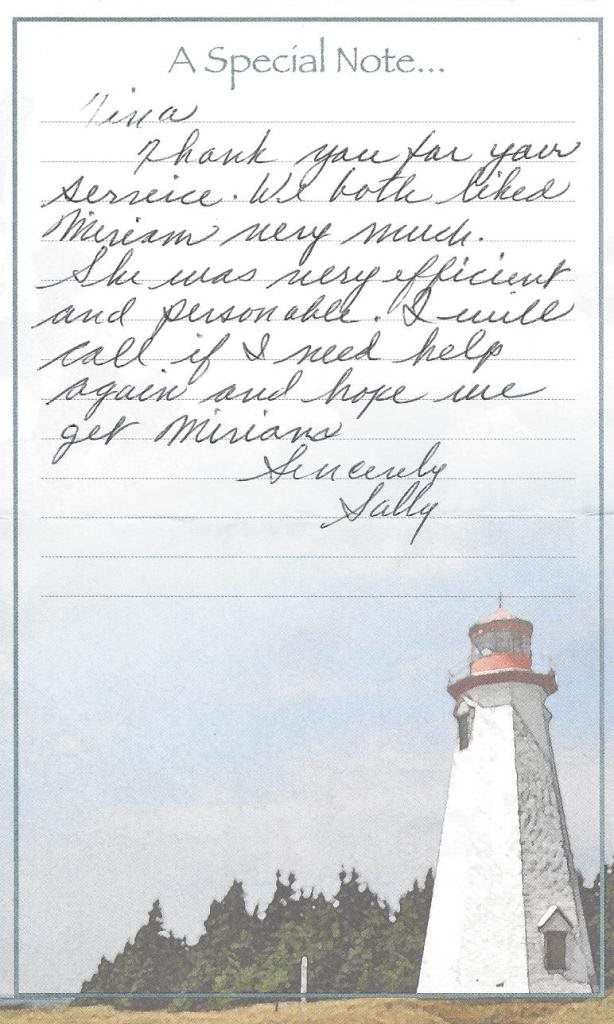 A Special Note...
Nina
Thank you for your
service. We both liked
Miriam very much.
She was very efficient
and personable. I will
call if I need help
again and hope we
get Miriam
Sincerely
Sally